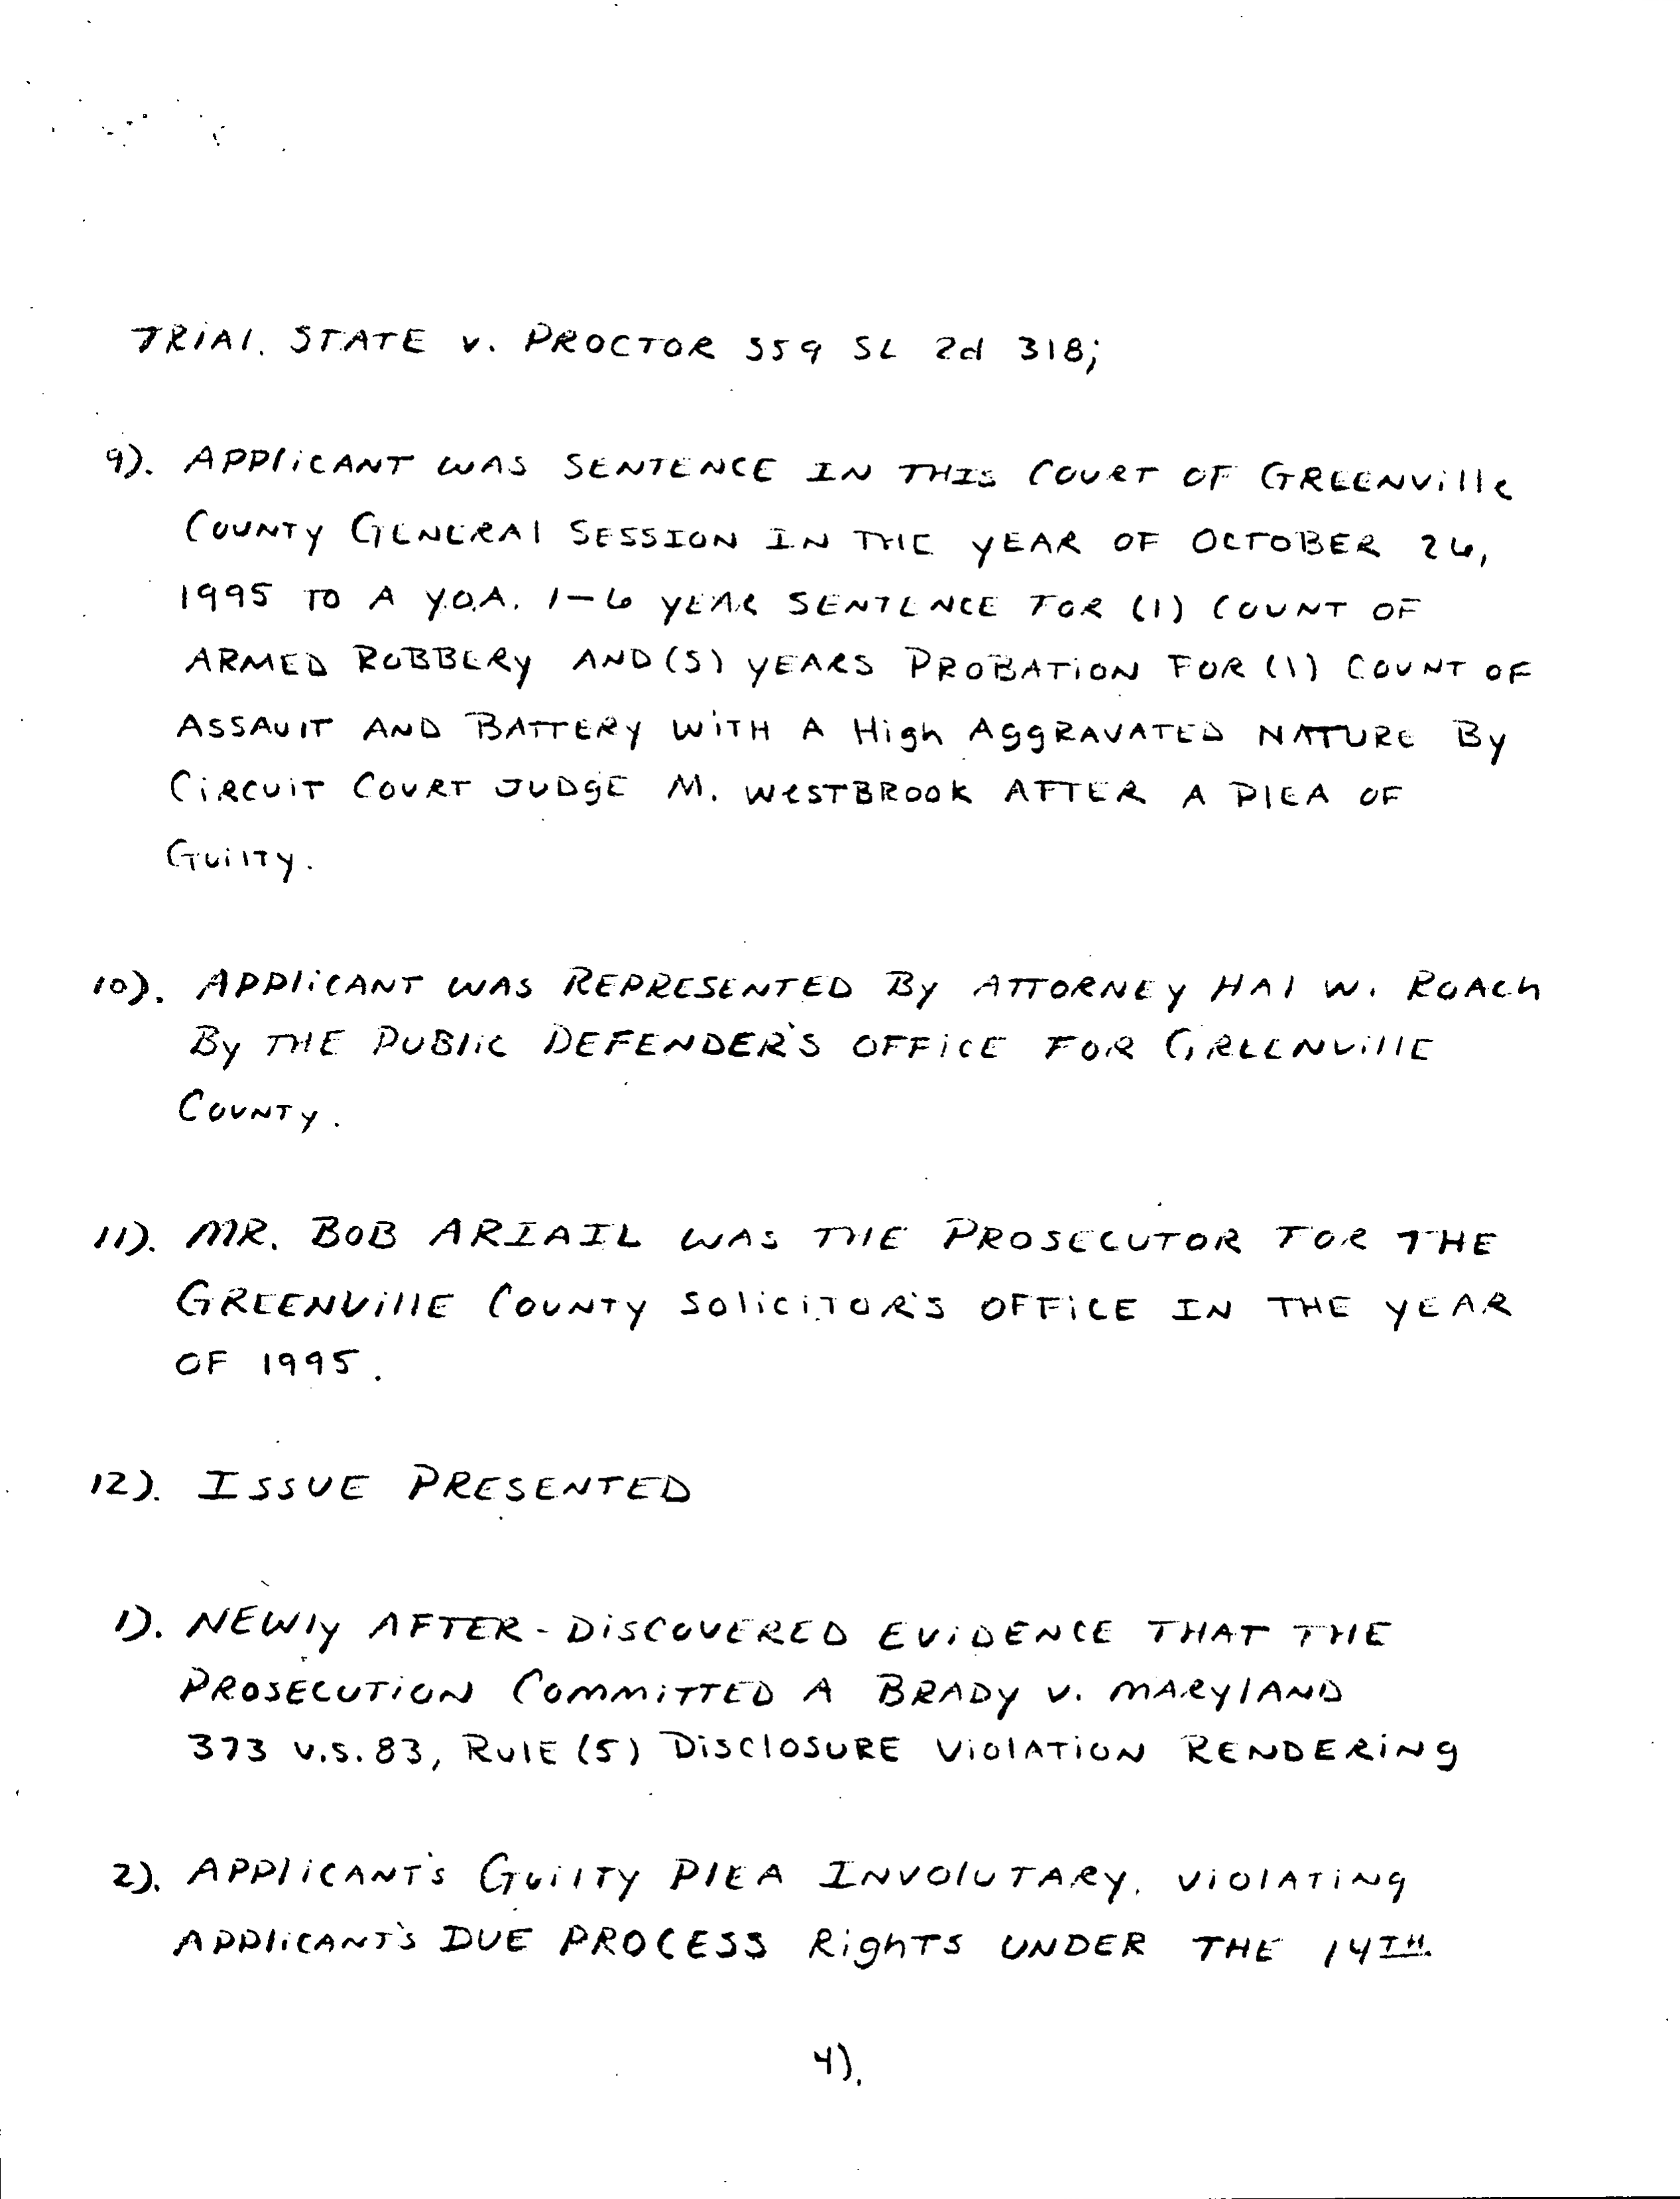 TRIAL. STATE v. PROCTOR 559 SE 2d 318;
9). APPLICANT WAS SENTENCE IN THIS COURT OF GREENVILLE
COUNTY GENERAL SESSION IN THE YEAR OF OCTOBER 26,
1995 TO A Y.O.A. 1-6 YEAR SENTENCE FOR (1) COUNT OF
ARMED ROBBERY AND (5) YEARS PROBATION FOR (1) COUNT OF
ASSAULT AND BATTERY WITH A High AggRAVATED NATURE By
CIRCUIT COURT JUDgE M. WESTBROOK AFTER A PLEA OF
GUILTY.
10). APPLICANT WAS REPRESENTED By ATTORNEY HAL W. ROACh
By THE PUBLIC DEFENDER'S OFFICE FOR GREENVILLE
COUNTY.
11). MR. BOB ARIAIL WAS THE PROSECUTOR FOR THE
GREENVILLE COUNTY SOLICITOR'S OFFICE IN THE YEAR
OF 1995.
12). ISSUE PRESENTED
1). NEWLY AFTER-DISCOVERED EVIDENCE THAT THE
PROSECUTION COMMITTED A BRADY v. MARYLAND
373 U.S. 83, RULE (5) DISCLOSURE VIOLATION RENDERINg
2). APPLICANT'S GUILTY PLEA INVOLUTARY, VIOLATINg
APPLICANT'S DUE PROCESS RighTS UNDER THE 14TH.
4).